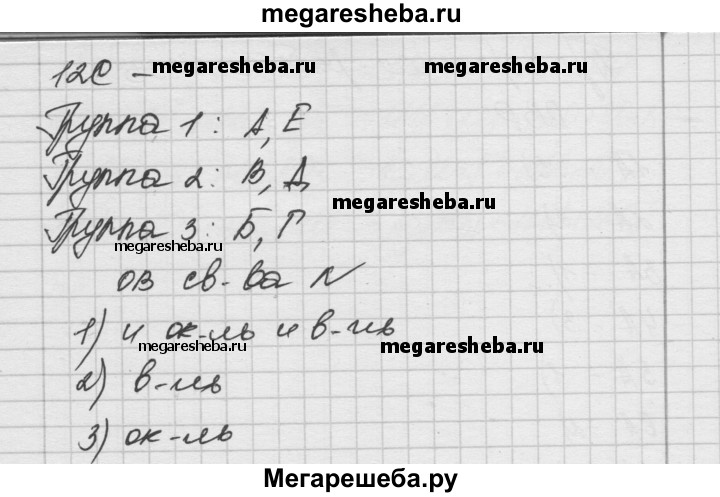 megaresheba.ru
12С – megaresheba.ru megaresheba.ru
Группа 1: А, Е
Группа 2: В, Д
megaresheba.ru
Группа 3: Б, Г
megaresheba.ru
ОВ св-ва N
1) и ок-ль и в-ль
megaresheba.ru megaresheba.ru
2) в-ль
3) ок-ль
Мегарешеба.ру